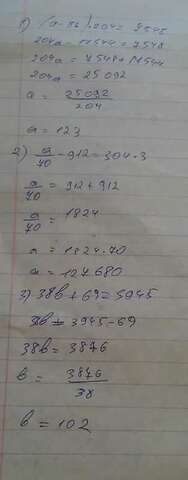 1) (a-56)·204=7548
204a-11544=7548
204a=7548+11544
204a=25092
a=25092/204
a=123
2) a/70-912=304·3
a/70=912+912
a/70=1824
a=1824·70
a=127680
3) 38b+69=3945
38b=3945-69
38b=3876
b=3876/38
b=102